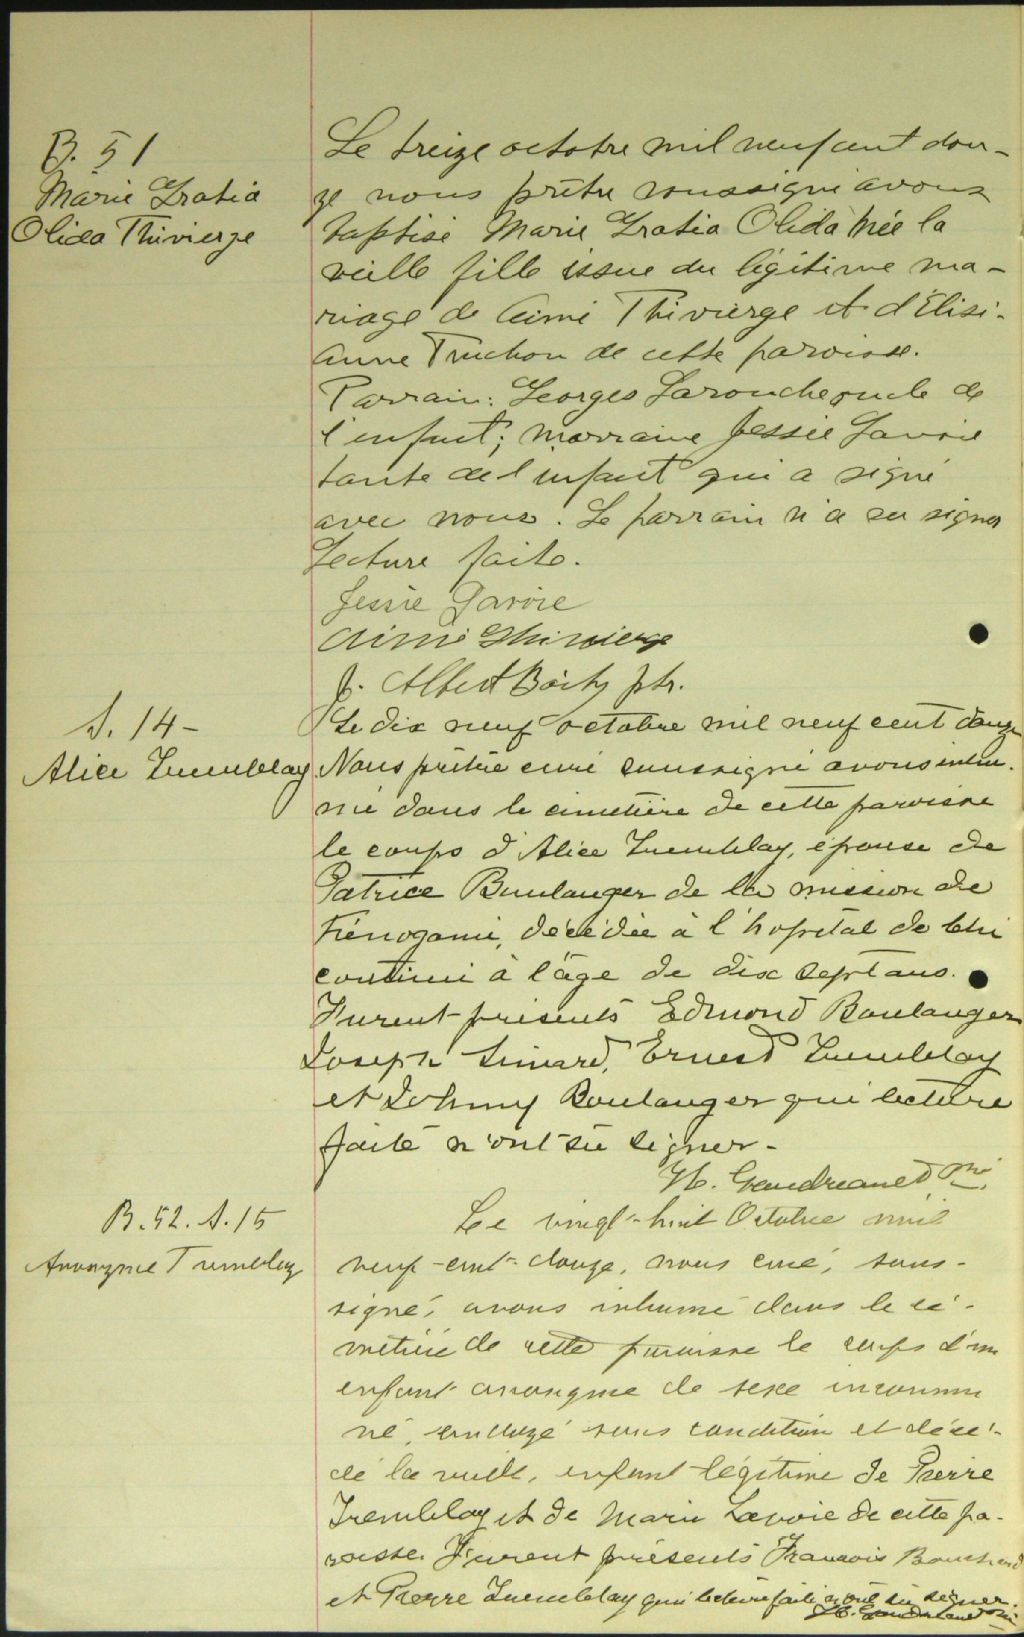 B. 51
Marie Gratia
Olida Thivierge
Le treize octobre mil neuf cent dou-
ze nous prêtre soussigné avons
baptisé Marie Gratia Olida née la
veille fille issue du légitime ma-
riage de Aimé Thivierge et d'Élisi-
anne Truchon de cette paroisse.
Parrain: Georges Larouche oncle de
l'enfant; marraine Jessie Savoie
tante de l'enfant qui a signé
avec nous. Le parrain n'a su signer
Lecture faite.
Jessie Savoie
Aimé Thivierge
J. Albert Boily ptr.
S. 14-
Alice Tremblay
Le dix neuf octobre mil neuf cent douze
Nous prêtre curé soussigné avons inhu-
mé dans le cimetière de cette paroisse
le corps d'Alice Tremblay, épouse de
Patrice Boulanger de la mission de
Kénogami, décédée à l'hopital de Chi
coutimi à l'âge de dix sept ans.
Furent présents Edmond Boulanger
Joseph Simard, Ernest Tremblay
et Johnny Boulanger qui lecture
faite n'ont su signer-
H. Gaudreault ptre
B. 52. S. 15
Anonyme Tremblay
Le vingt-huit Octobre mil
neuf-cent-douze, nous curé, sous-
signé, avons inhumé dans le ci-
metière de cette paroisse le corps d'un
enfant anonyme de sexe inconnu
né, ondoyé sous condition et décé-
dé la veille, enfant légitime de Pierre
Tremblay et de Marie Lavoie de cette pa-
roisse. Furent présents François Bouchard
et Pierre Tremblay qui lecture faite n'ont su signer.
H. Gaudreault ptre